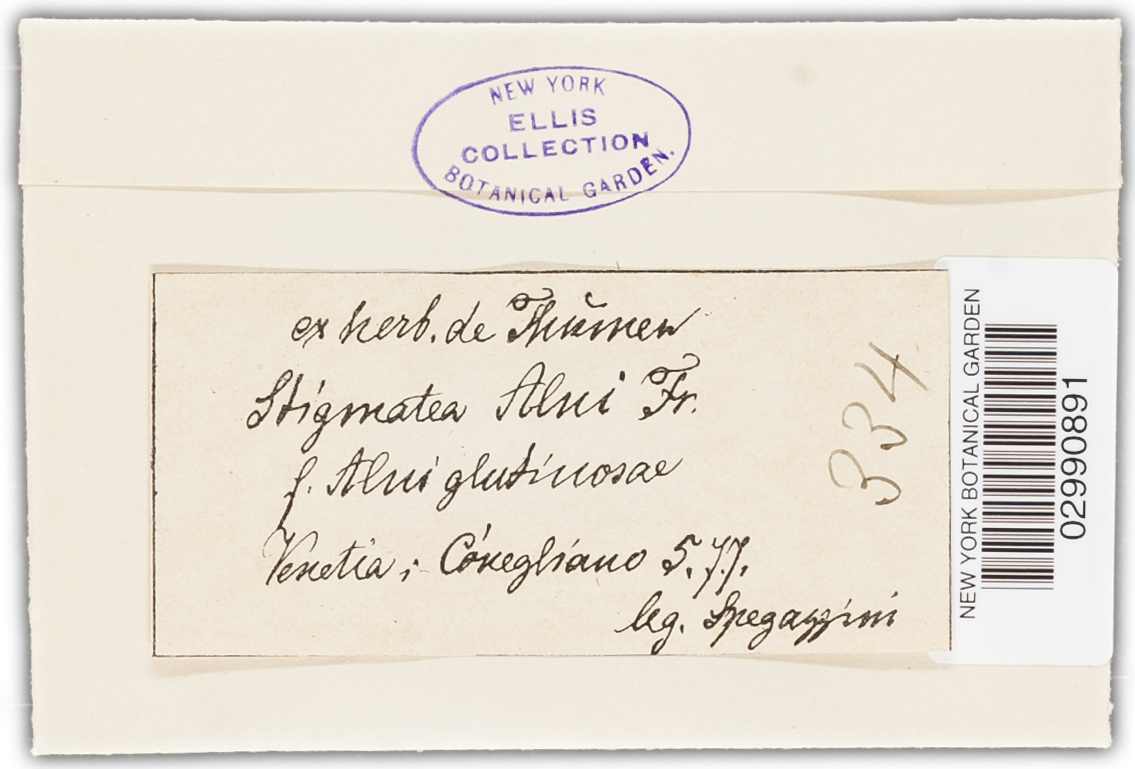 NEW YORK
ELLIS
COLLECTION
BOTANICAL GARDEN.
ex herb. de Thümen
Stigmatea Alni Fr.
f. Alni glutinosae
Venetia; Conegliano 5.77.
leg. Spegazzini
334
NEW YORK BOTANICAL GARDEN
02990891